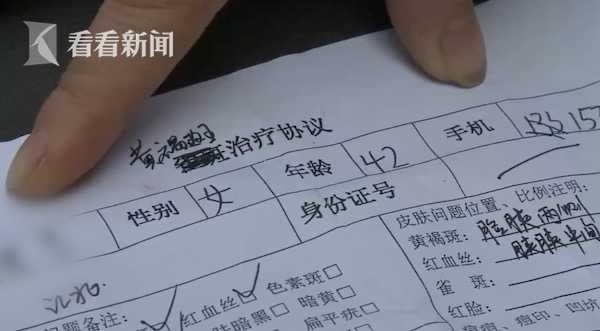 看看新闻
黄褐斑治疗协议
性别 女 年龄 42 手机 135 15
身份证号
皮肤问题位置、比例注明：
黄褐斑： 脸颊两侧
红血丝： 脸颊中间
雀 斑：
红脸：
题备注： 红血丝 色素斑
肤暗黑 暗黄
扁平疣
痘印、凹